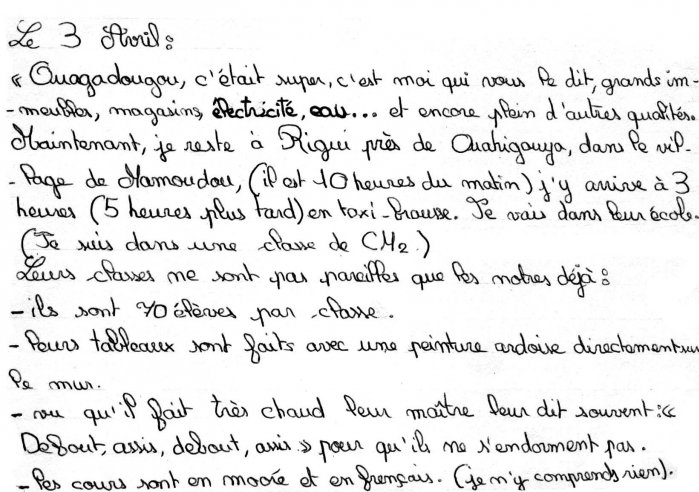 Le 3 Avril :
« Ouagadougou, c'était super, c'est moi qui vous le dit, grands im-
-meubles, magasins, électricité, eau... et encore plein d'autres qualités.
Maintenant, je reste à Rigui près de Ouahigouya, dans le vil-
-lage de Mamoudou, (il est 10 heures du matin) j'y arrive à 3
heures (5 heures plus tard) en taxi-brousse. Je vais dans leur école.
(Je suis dans une classe de CM2.)
Leurs classes ne sont pas pareilles que les notres déjà :
- ils sont 70 élèves par classe.
- leurs tableaux sont faits avec une peinture ardoise directement sur
le mur.
- vu qu'il fait très chaud leur maître leur dit souvent : «
Debout, assis, debout, assis » pour qu'ils ne s'endorment pas.
- les cours sont en mooré et en français. (je n'y comprends rien).